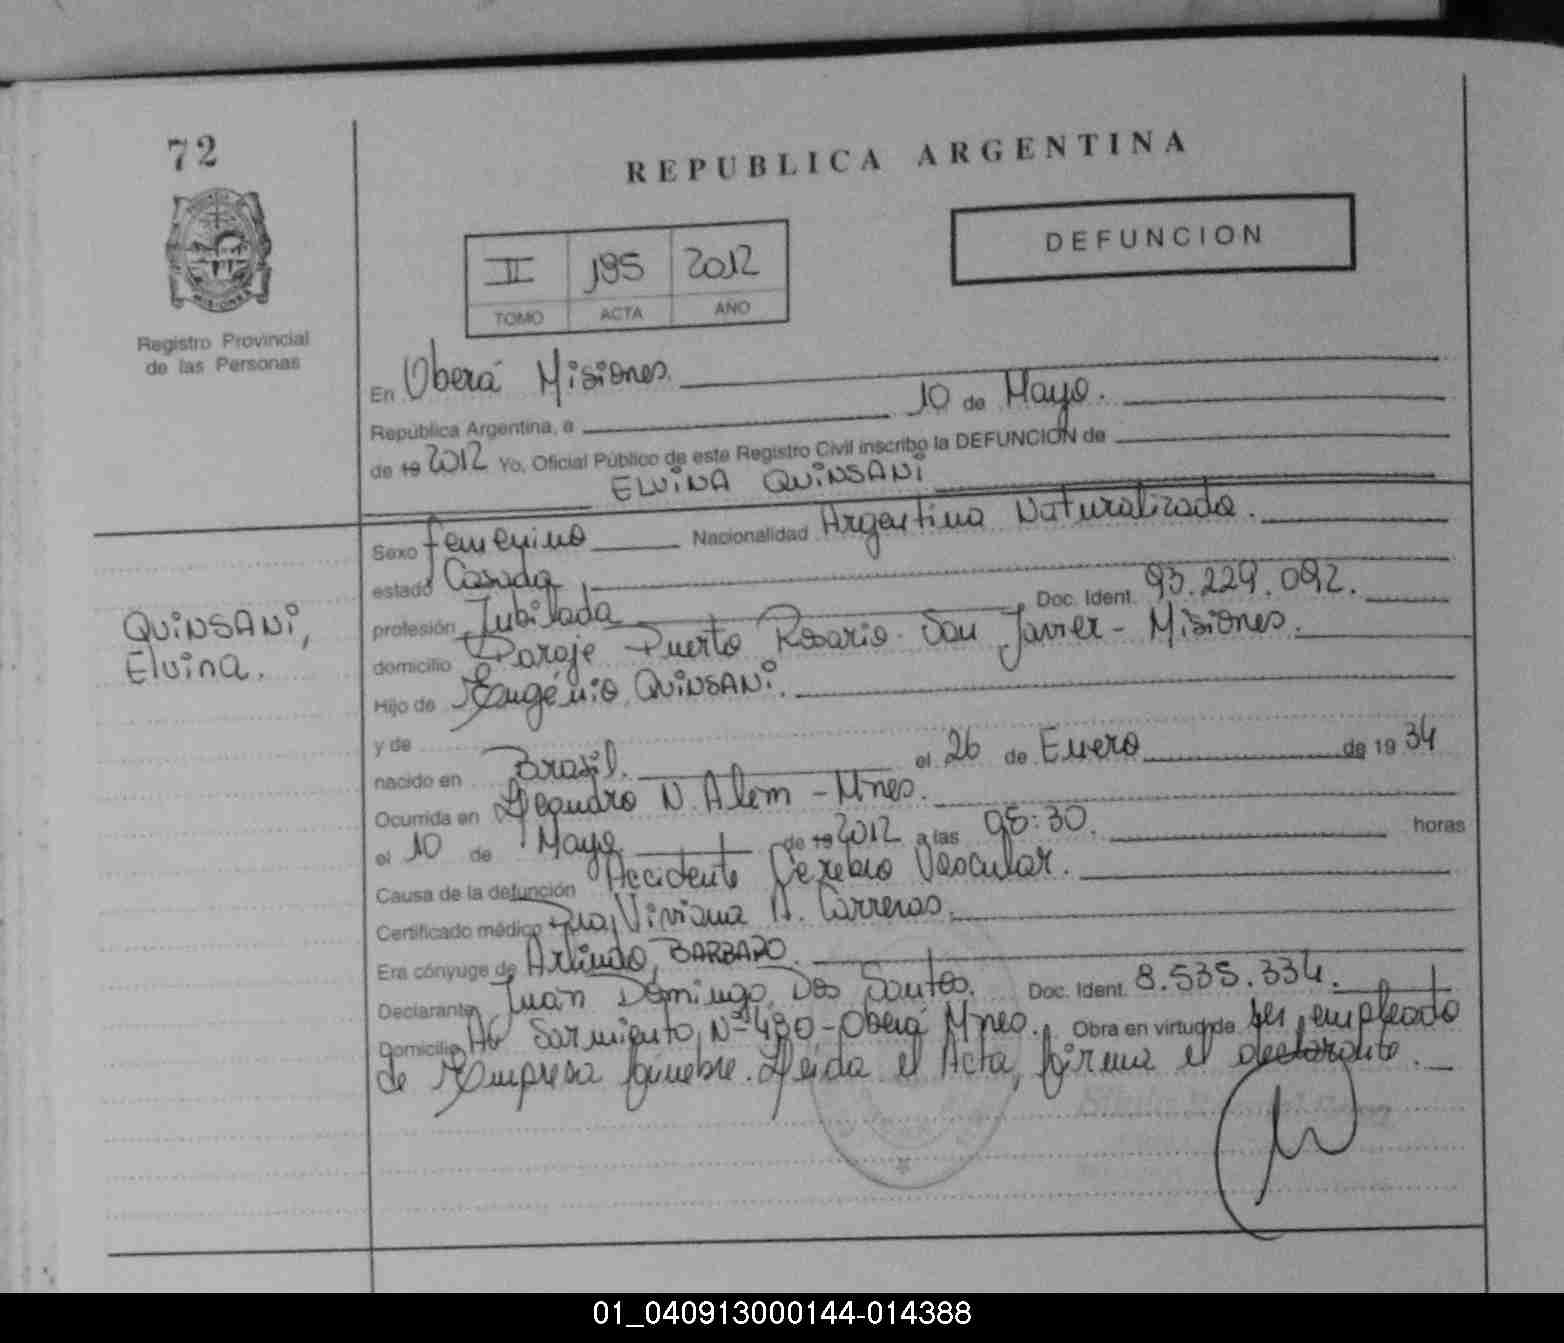 72
REPUBLICA ARGENTINA
DEFUNCION
II 195 2012
TOMO ACTA AÑO
Registro Provincial
de las Personas
En Oberá Misiones.
República Argentina, a 10 de Mayo.
de 19 2012 Yo, Oficial Público de este Registro Civil inscribo la DEFUNCION de
ELVINA QUINSANI
Sexo femenino Nacionalidad Argentina Naturalizada.
estado Casada
QUINSANI,
Elvina.
profesión Jubilada Doc. Ident. 93.229.092.
domicilio Paraje Puerto Rosario - San Javier - Misiones.
Hijo de Eugénio QUINSANI.
y de
nacido en Brasil. el 26 de Enero de 19 34
Ocurrida en Leandro N. Alem - Mnes.
el 10 de Mayo de 19 2012 a las 05:30. horas
Causa de la defunción Accidente Cerebro Vascular.
Certificado médico Dra, Viviana A. Carreras.
Era cónyuge de Arlindo, BARBARO.
Declarante Juan Domingo, Dos Santos. Doc. Ident. 8.535.334.
Domicilio Av Sarmiento, Nº 480 - Oberá Mnes. Obra en virtud de ser empleado
de Empresa fúnebre. Leída el Acta, firma el declarante.
01_040913000144-014388